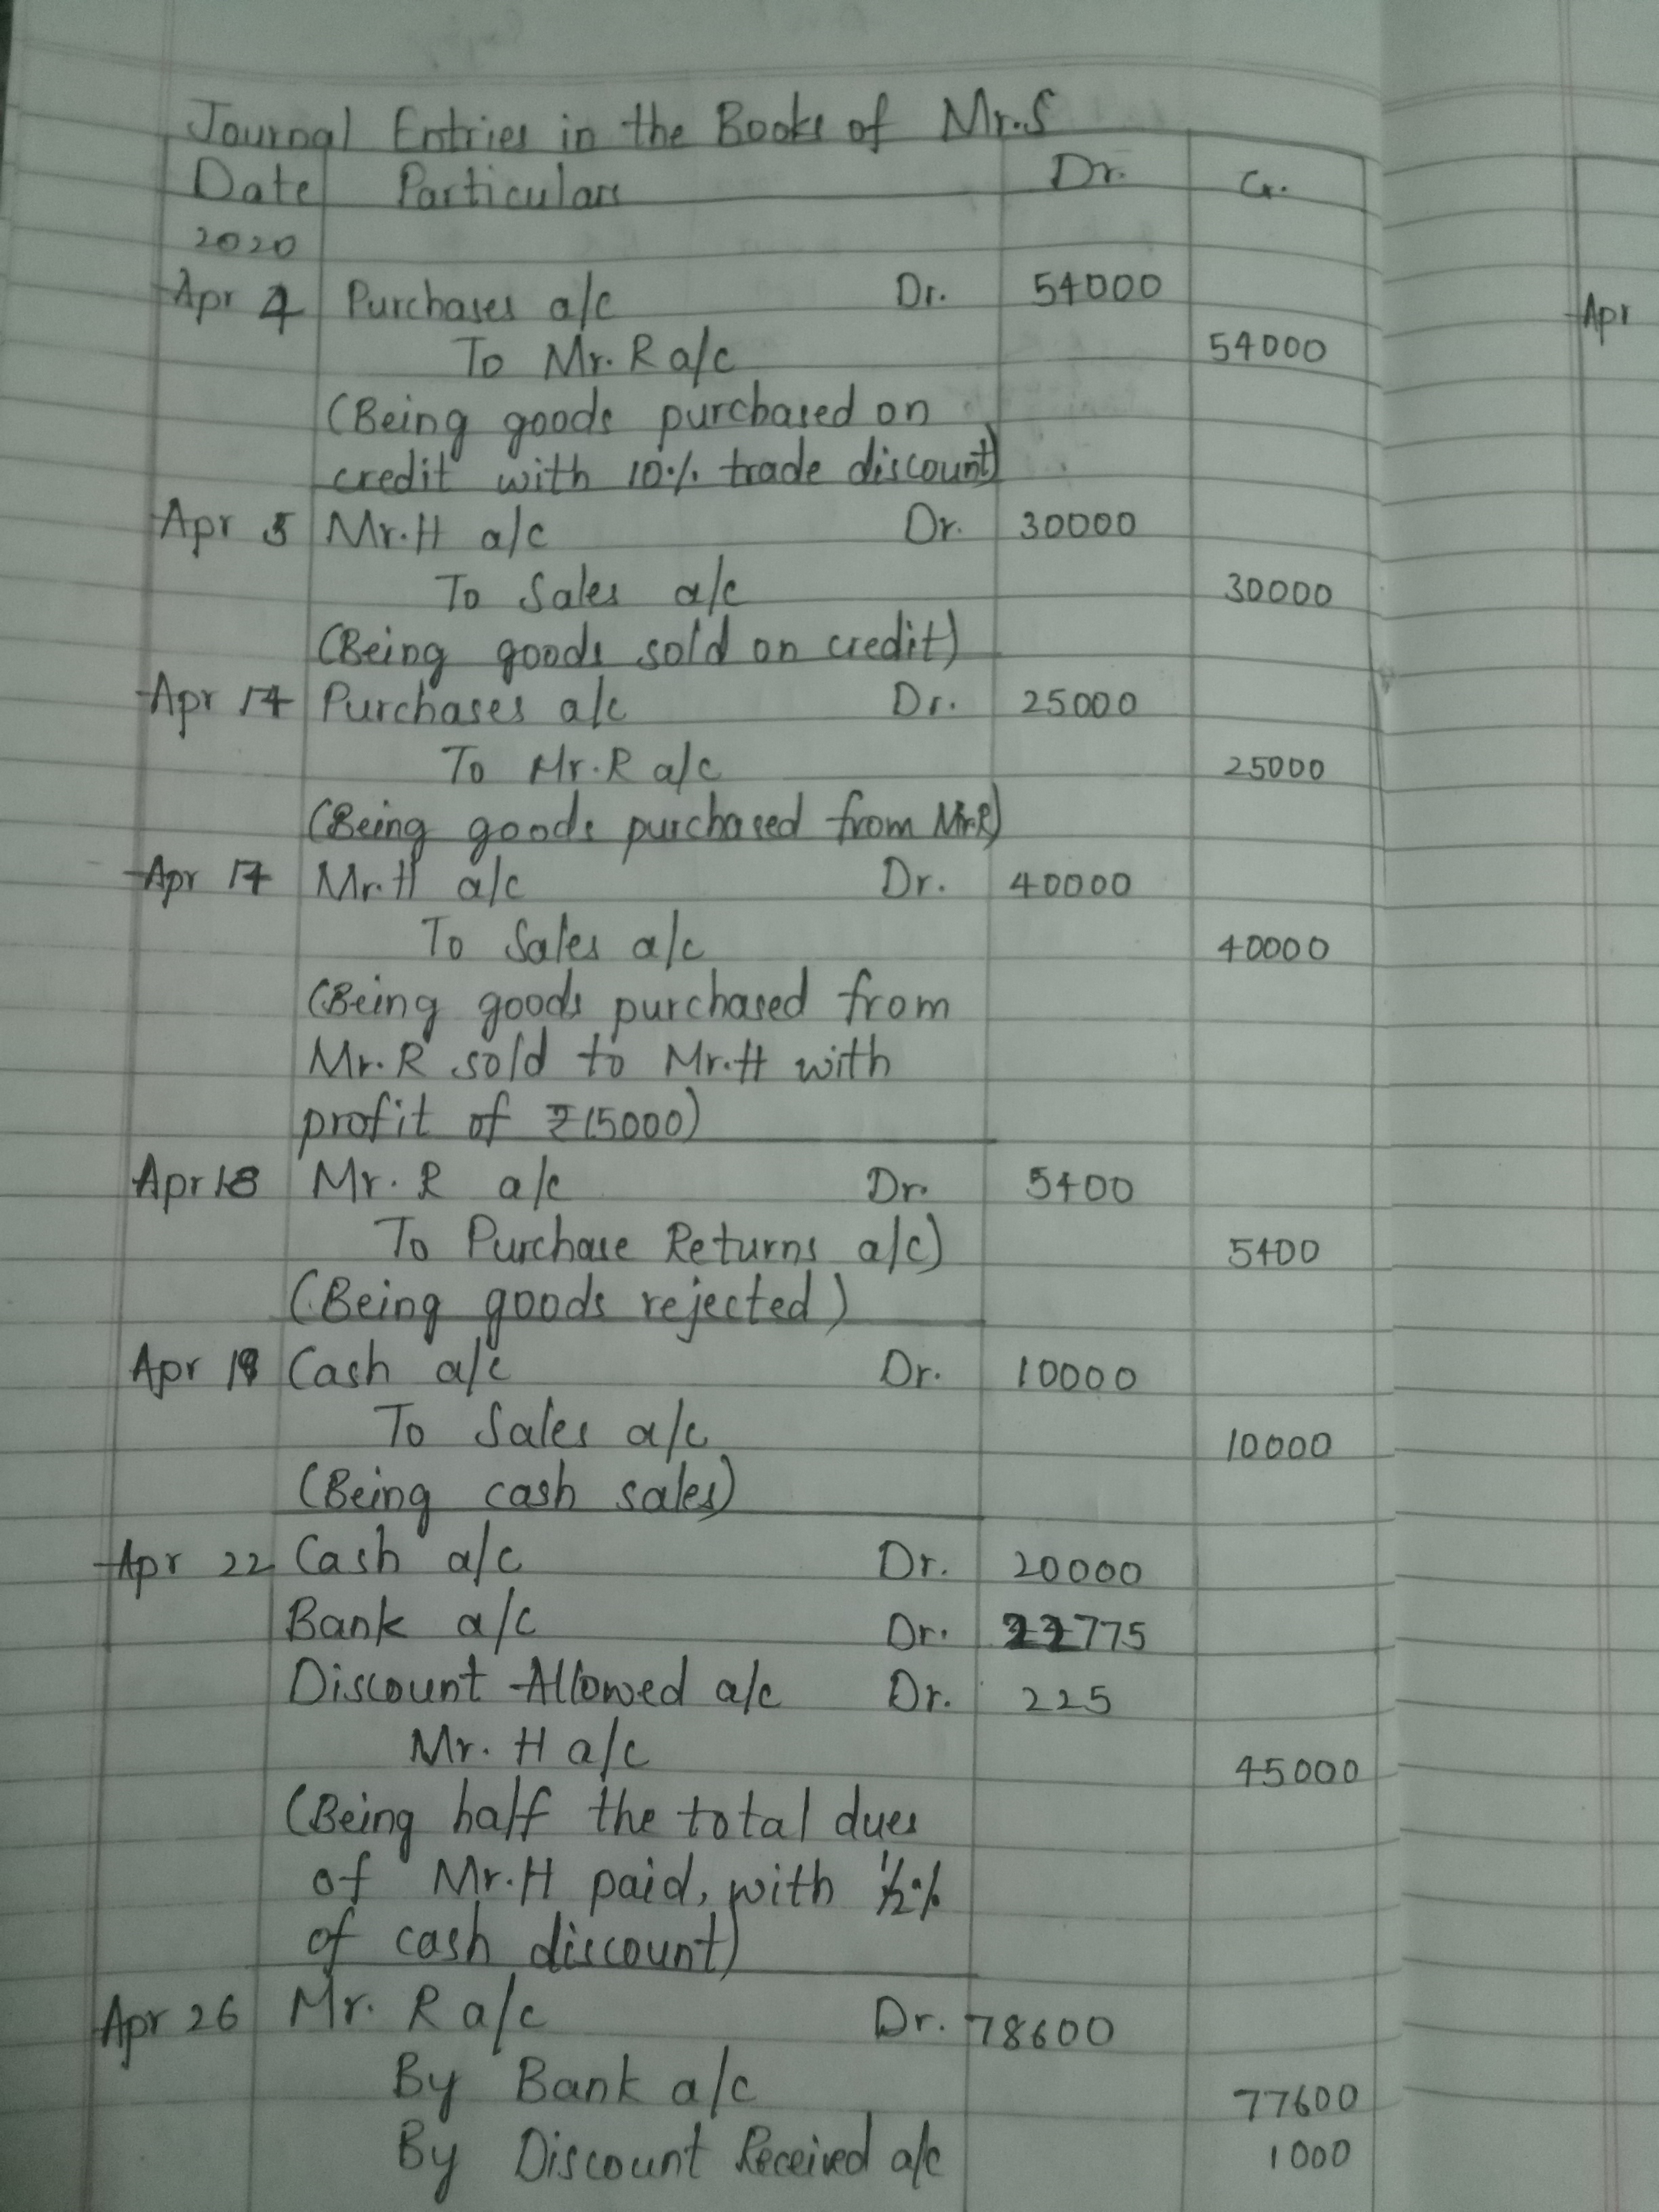 Journal Entries in the Books of Mr.S
Date Particulars Dr. Cr.
2020
Apr 4 Purchases a/c Dr. 54000
To Mr. R a/c 54000
(Being goods purchased on
credit with 10% trade discount)
Apr 5 Mr.H a/c Dr. 30000
To Sales a/c 30000
(Being goods sold on credit)
Apr 17 Purchases a/c Dr. 25000
To Mr.R a/c 25000
(Being goods purchased from Mr.R)
Apr 17 Mr.H a/c Dr. 40000
To Sales a/c 40000
(Being goods purchased from
Mr.R sold to Mr.H with
profit of ₹15000)
Apr 18 Mr. R a/c Dr. 5400
To Purchase Returns a/c) 5400
(Being goods rejected)
Apr 19 Cash a/c Dr. 10000
To Sales a/c 10000
(Being cash sales)
Apr 22 Cash a/c Dr. 20000
Bank a/c Dr. 775
Discount Allowed a/c Dr. 225
Mr. H a/c 45000
(Being half the total dues
of Mr.H paid, with ½%
of cash discount)
Apr 26 Mr. R a/c Dr. 78600
By Bank a/c 77600
By Discount Received a/c 1000
Apr